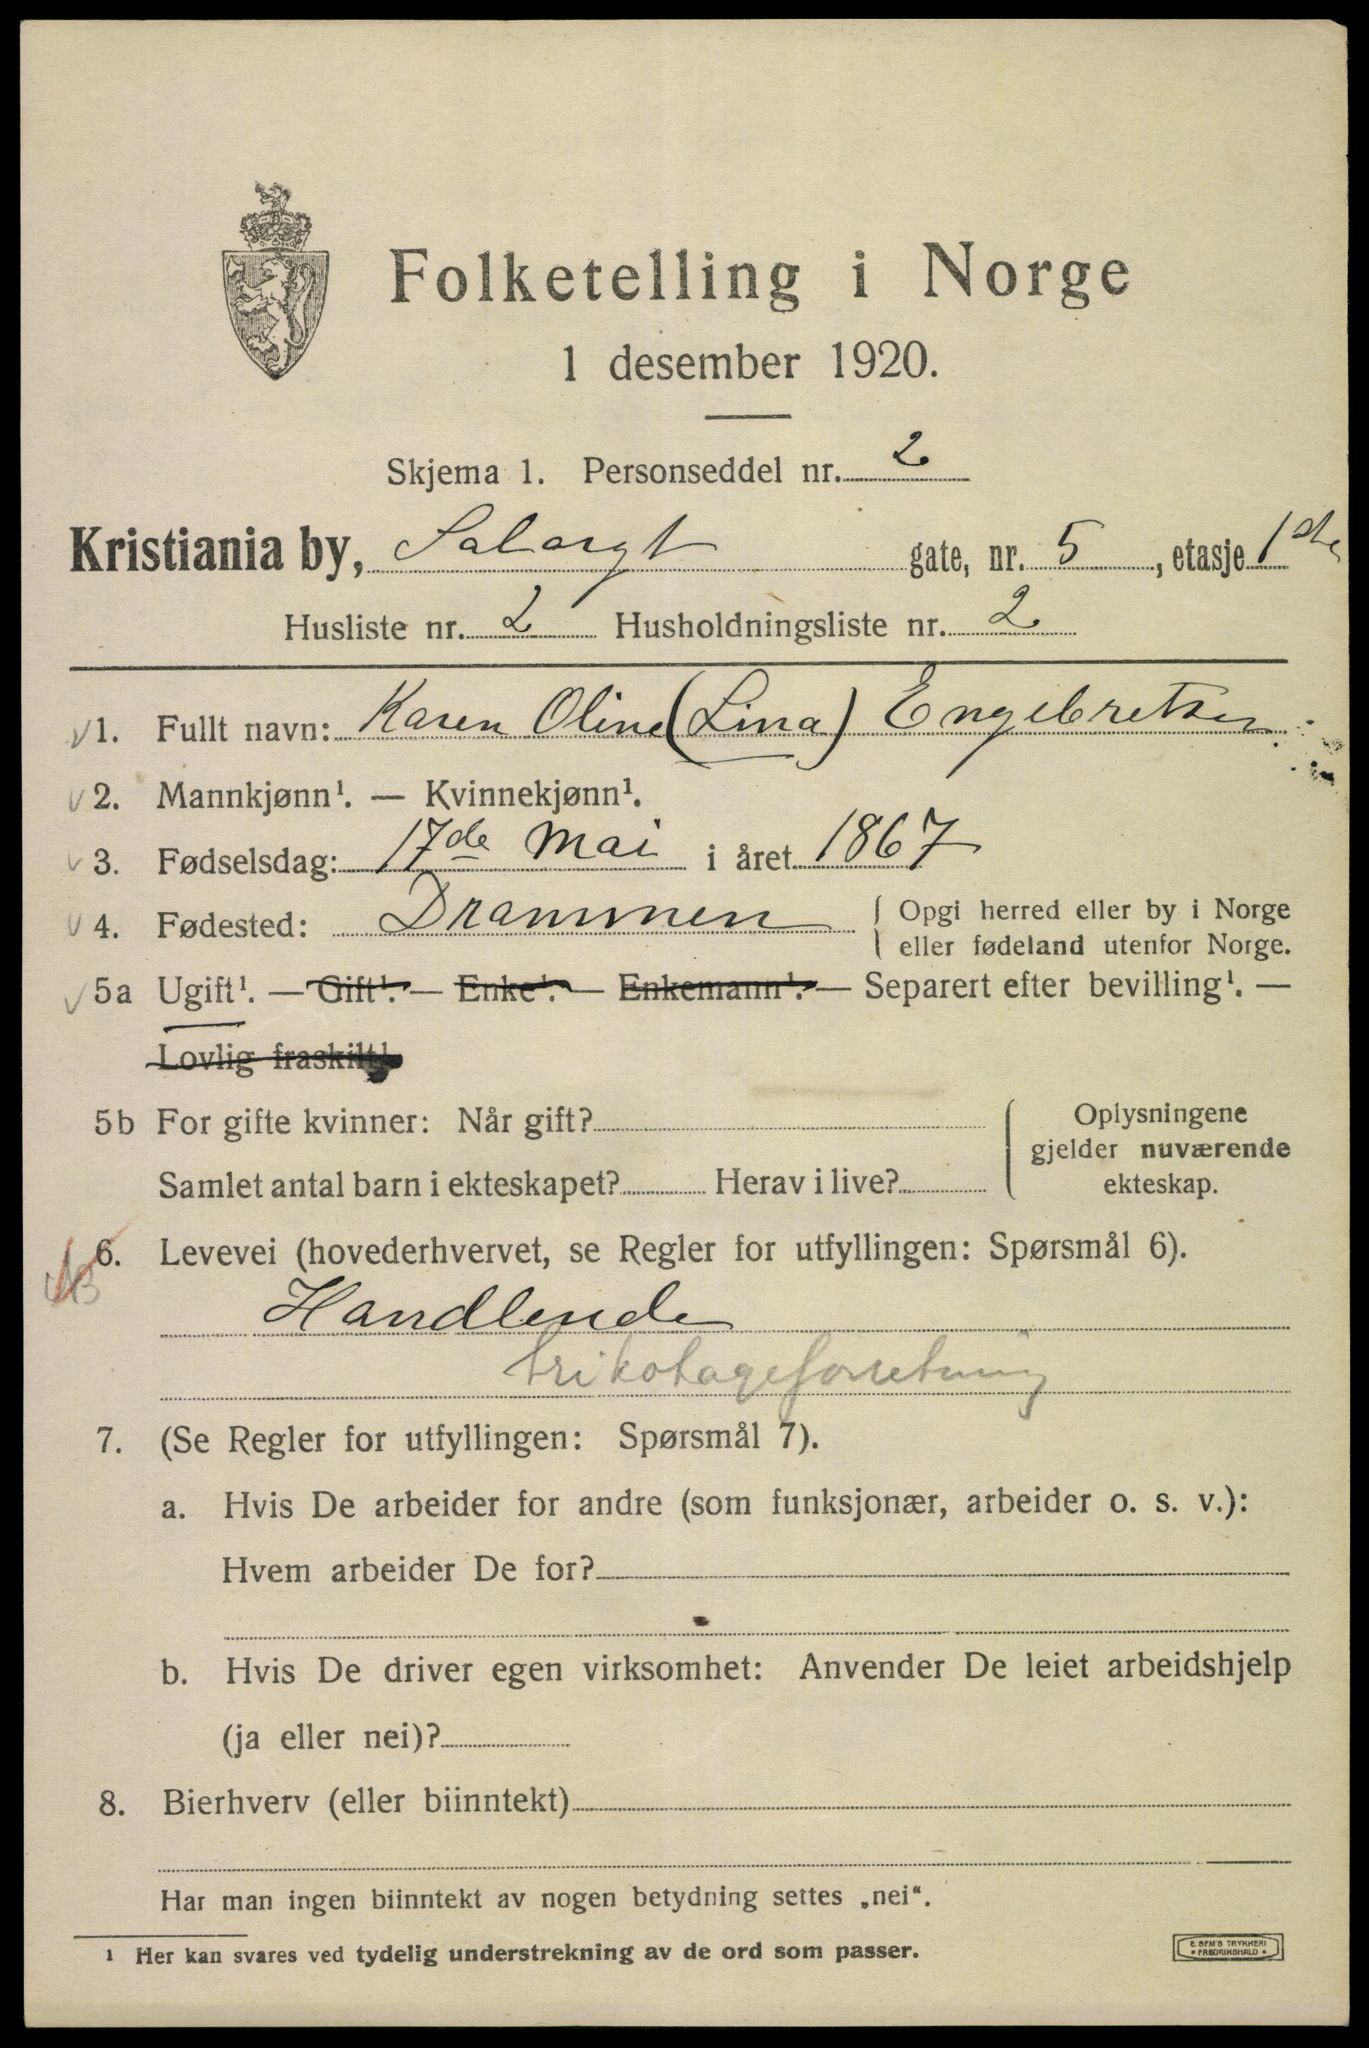 Folketelling i Norge
1 desember 1920.
Skjema 1. Personseddel nr. 2
Kristiania by, gate, nr. 5, etasje 1ste
Husliste nr. 2 Husholdningsliste nr. 2
1. Fullt navn: Karen Oline (Lina) Engebretsen
2. Mannkjønn¹. — Kvinnekjønn¹.
3. Fødselsdag: 17de Mai i året 1867
4. Fødested: Drammen { Opgi herred eller by i Norge
eller fødeland utenfor Norge.
5a Ugift¹. — Gift¹. — Enke¹. — Enkemann¹. — Separert efter bevilling¹. —
Lovlig fraskilt¹.
5b For gifte kvinner: Når gift? { Oplysningene
gjelder nuværende
Samlet antal barn i ekteskapet? Herav i live? ekteskap.
6. Levevei (hovederhvervet, se Regler for utfyllingen: Spørsmål 6).
Handlende
trikotageforretning
7. (Se Regler for utfyllingen: Spørsmål 7).
a. Hvis De arbeider for andre (som funksjonær, arbeider o. s. v.):
Hvem arbeider De for?
b. Hvis De driver egen virksomhet: Anvender De leiet arbeidshjelp
(ja eller nei)?
8. Bierhverv (eller biinntekt)
Har man ingen biinntekt av nogen betydning settes „nei“.
¹ Her kan svares ved tydelig understrekning av de ord som passer.
E. SEM'S TRYKKERI
• FREDRIKSHALD •